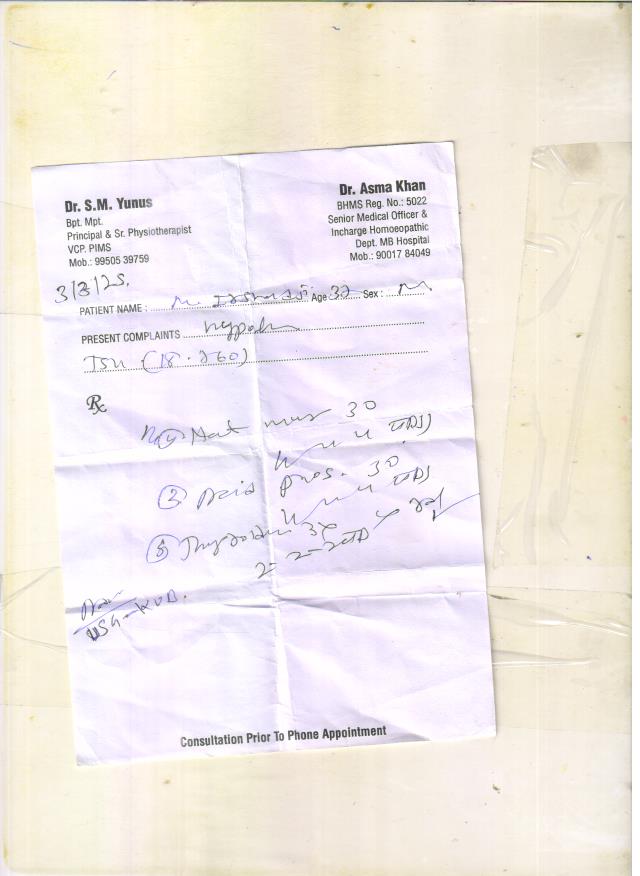 Dr. S.M. Yunus
Bpt. Mpt.
Principal & Sr. Physiotherapist
VCP. PIMS
Mob.: 99505 39759
Dr. Asma Khan
BHMS Reg. No.: 5022
Senior Medical Officer &
Incharge Homoeopathic
Dept. MB Hospital
Mob.: 90017 84049
3/3/25.
PATIENT NAME : M. Age 32 Sex : M
PRESENT COMPLAINTS
TSH (18.260)
Rx
① Nat mur 30
4 4 4
② Acid phos. 30
4 4 4
③ Thyroidin 3x
2-2-2
USG-KUB.
Consultation Prior To Phone Appointment